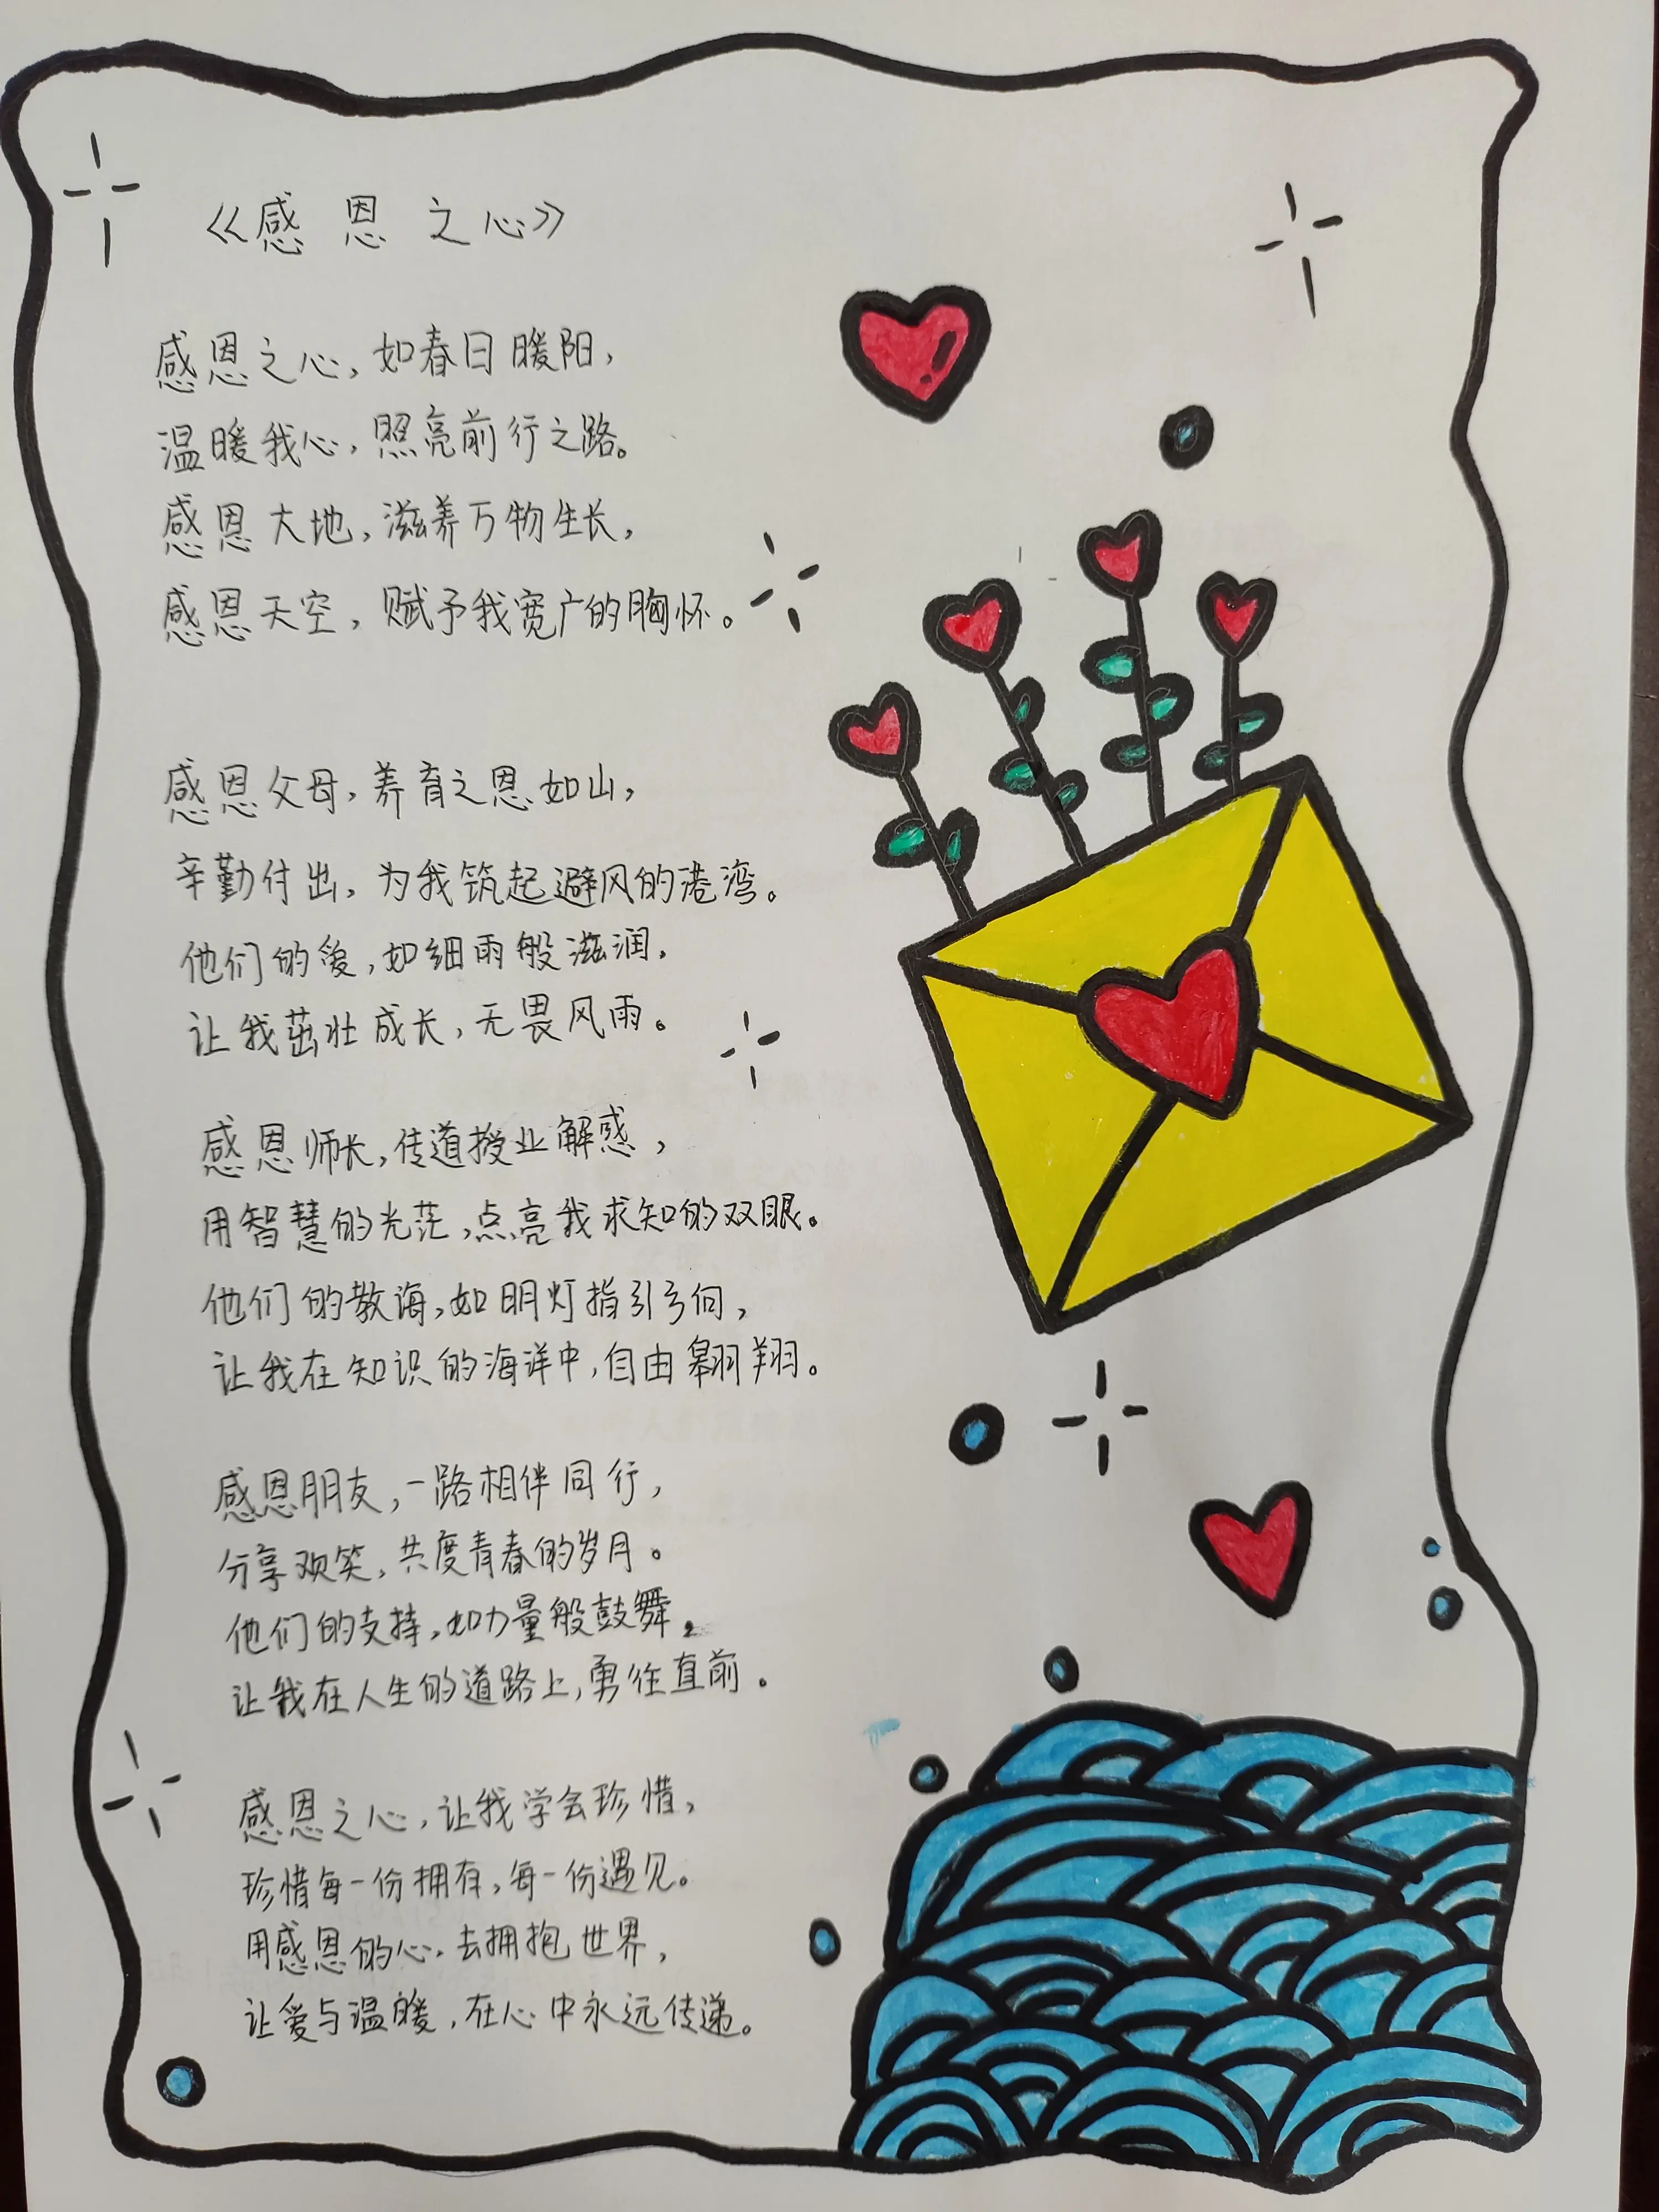 《感恩之心》
感恩之心,如春日暖阳,
温暖我心,照亮前行之路。
感恩大地,滋养万物生长,
感恩天空,赋予我宽广的胸怀。
感恩父母,养育之恩如山,
辛勤付出,为我筑起避风的港湾。
他们的爱,如细雨般滋润,
让我茁壮成长,无畏风雨。
感恩师长,传道授业解惑,
用智慧的光茫,点亮我求知的双眼。
他们的教诲,如明灯指引方向,
让我在知识的海洋中,自由翱翔。
感恩朋友,一路相伴同行,
分享欢笑,共度青春的岁月。
他们的支持,如力量般鼓舞,
让我在人生的道路上,勇往直前。
感恩之心,让我学会珍惜,
珍惜每一份拥有,每一份遇见。
用感恩的心,去拥抱世界,
让爱与温暖,在心中永远传递。